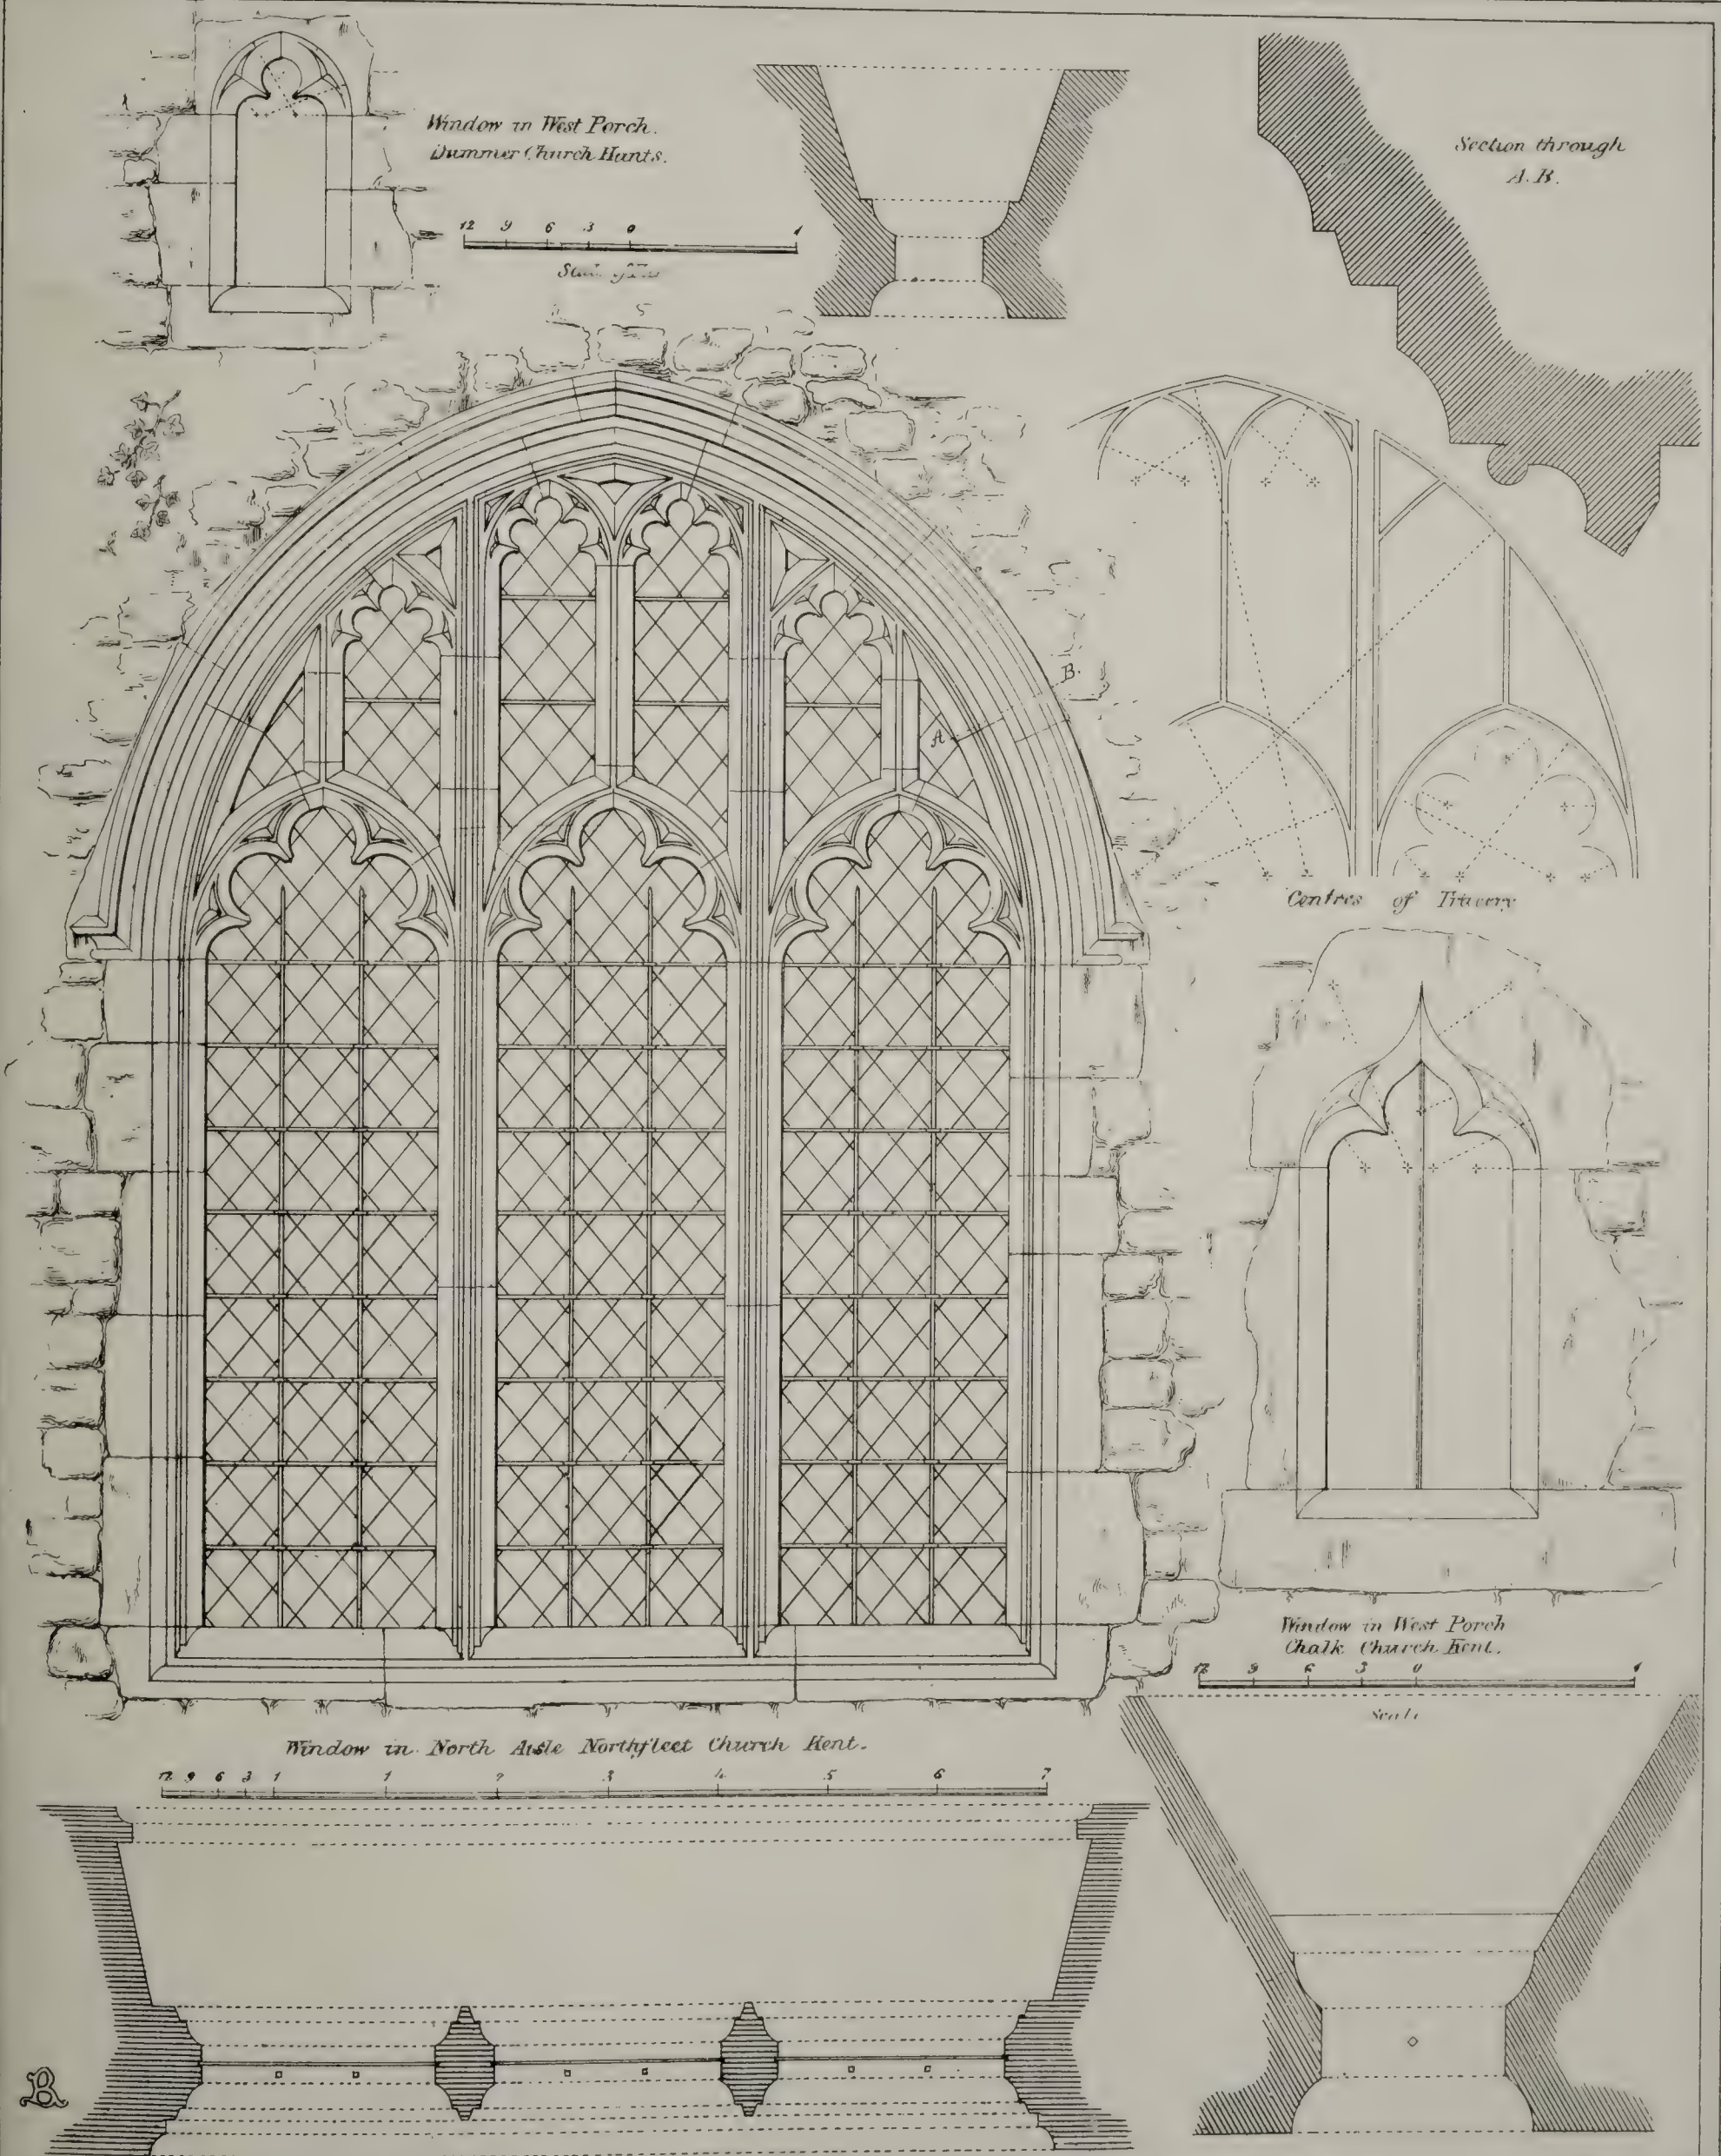 Window in West Porch.
Dummer Church Hants.
12 9 6 3 0 1
Section through
A.B.
B.
A
Centres of Tracery
Window in West Porch
Chalk Church Kent.
12 9 6 3 0 1
Scale
Window in North Aisle Northfleet Church Kent.
12 9 6 3 1 1 2 3 4 5 6 7
B